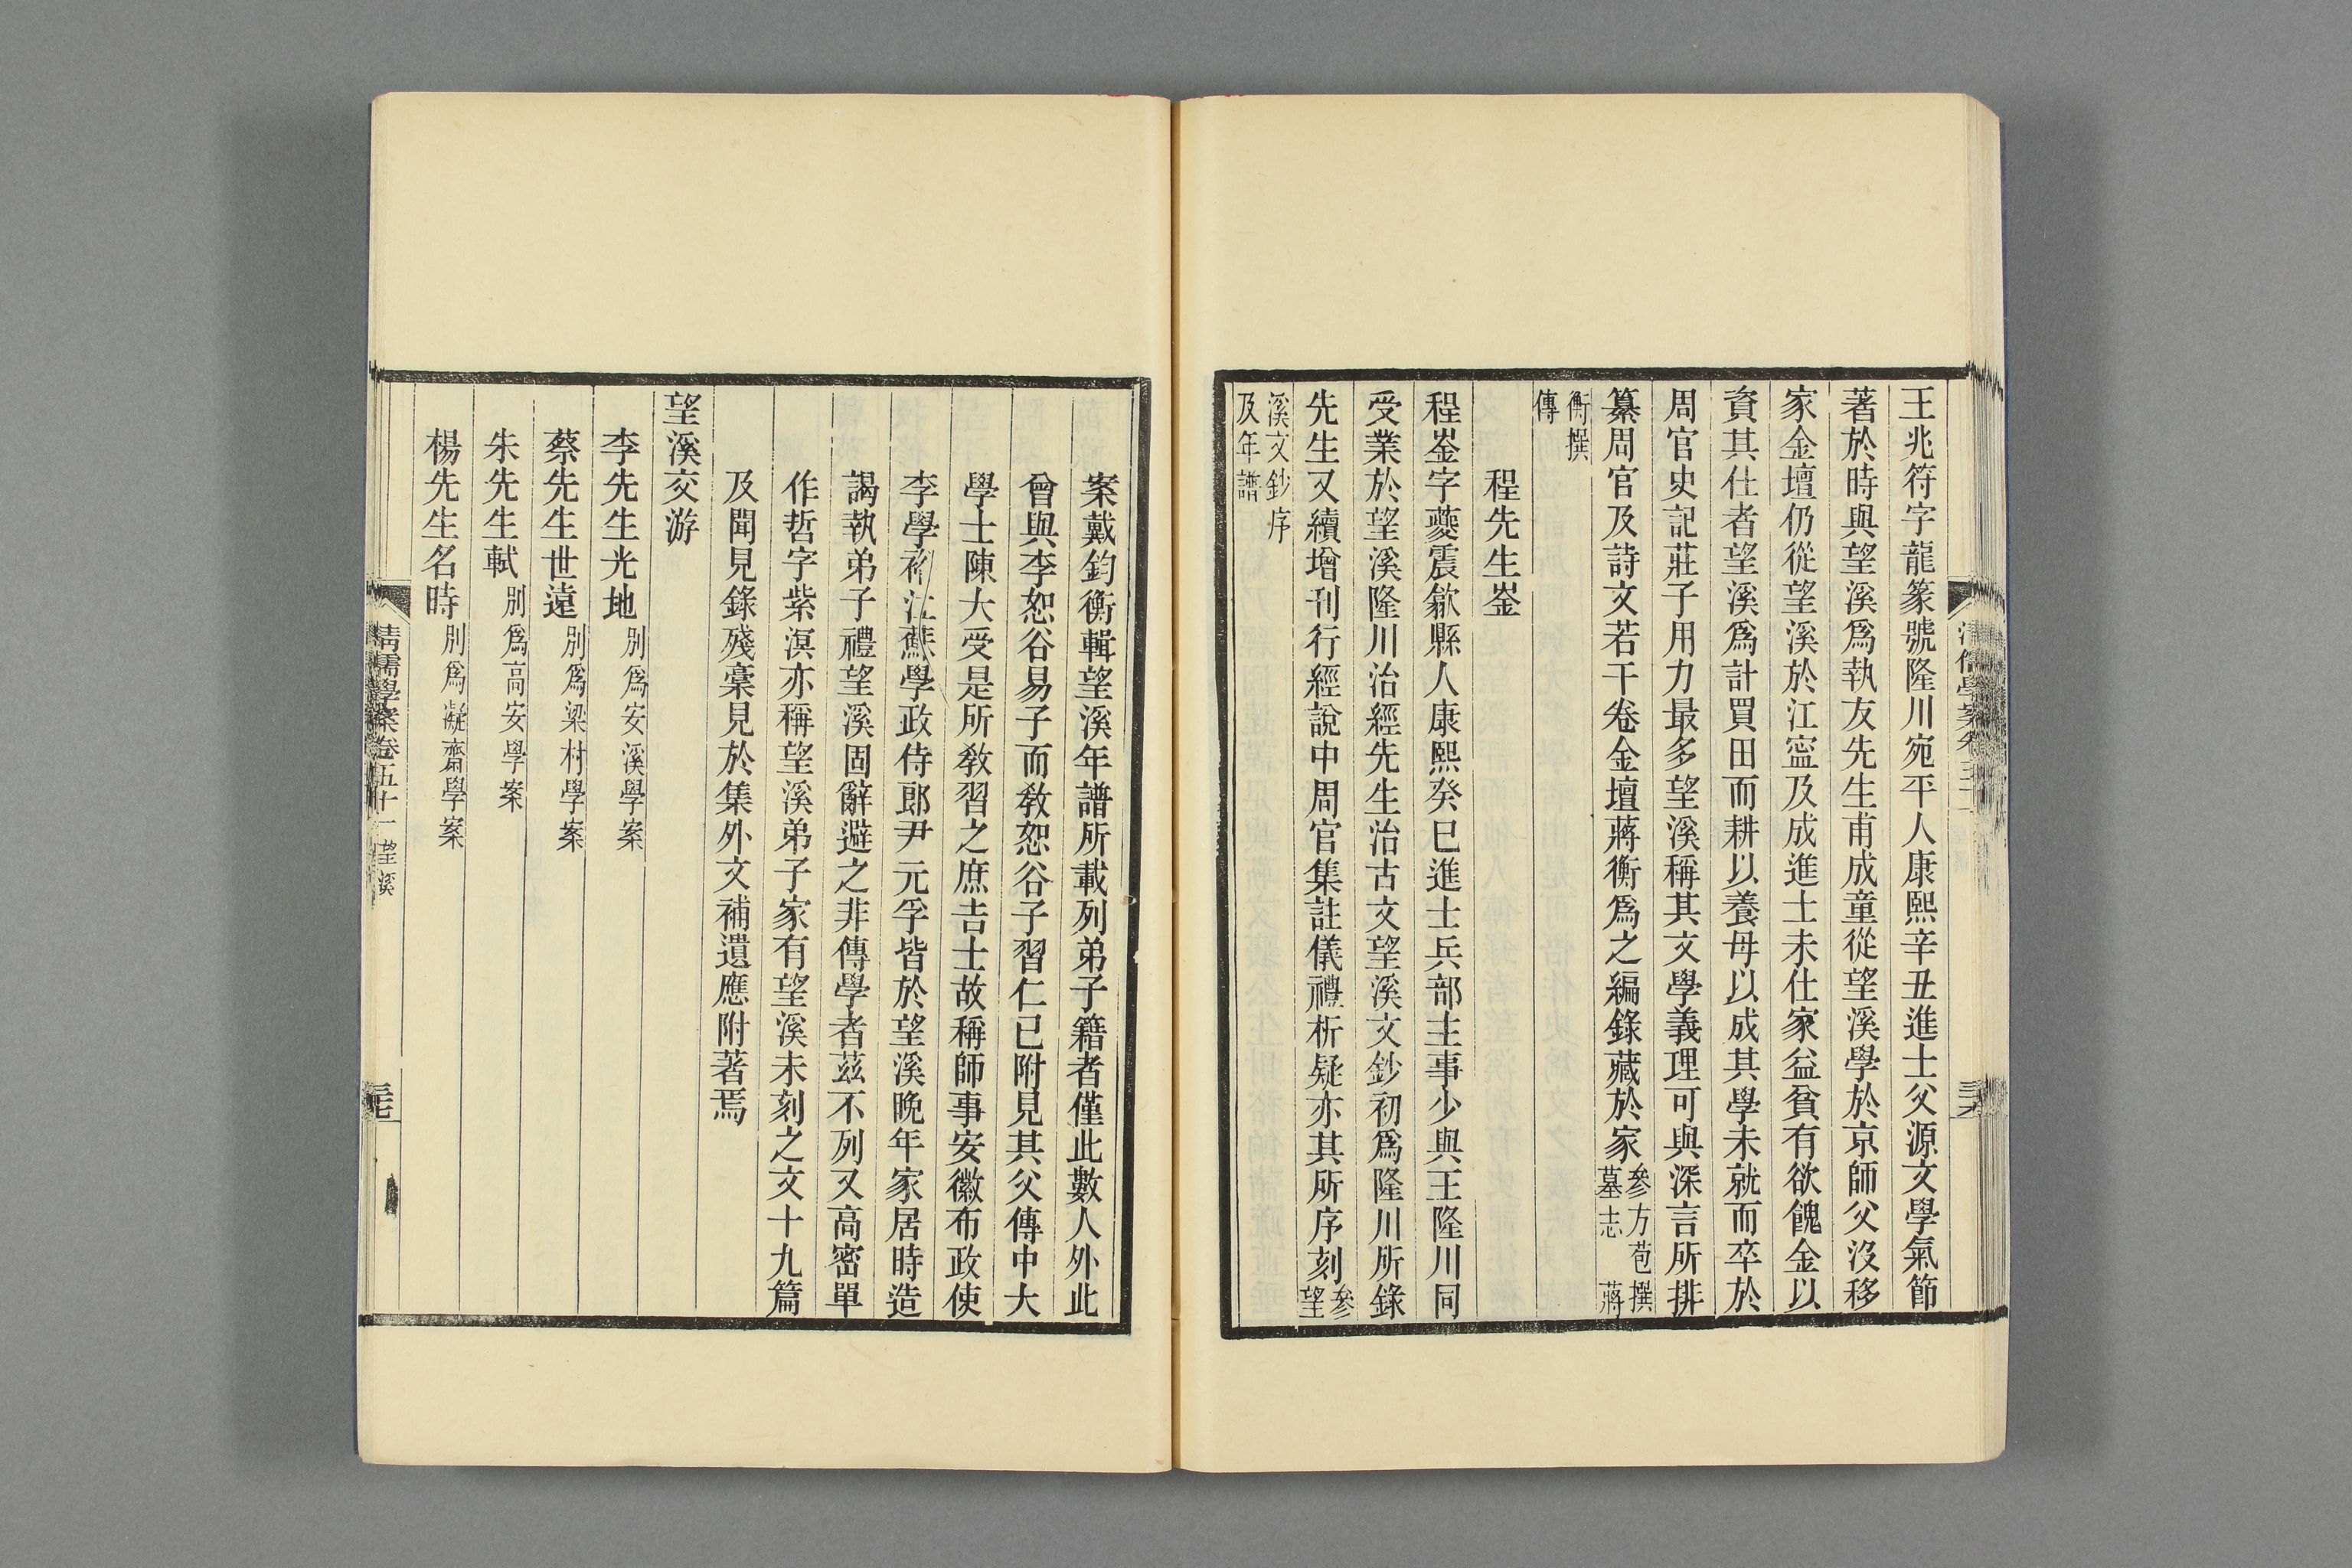 王兆符字龍篆號隆川宛平人康熙辛丑進士父源文學氣節
著於時與望溪爲執友先生甫成童從望溪學於京師父沒移
家金壇仍從望溪於江寍及成進士未仕家益貧有欲餽金以
資其仕者望溪爲計買田而耕以養母以成其學未就而卒於
周官史記莊子用力最多望溪稱其文學義理可與深言所排
纂周官及詩文若干卷金壇蔣衡爲之編錄藏於家參方苞撰墓志 蔣
衡撰傳
程先生崟
程崟字夔震歙縣人康熙癸巳進士兵部主事少與王隆川同
受業於望溪隆川治經先生治古文望溪文鈔初爲隆川所錄
先生又續增刊行經說中周官集註儀禮析疑亦其所序刻參望
溪文鈔序及年譜
案戴鈞衡輯望溪年譜所載列弟子籍者僅此數人外此
曾與李恕谷易子而敎恕谷子習仁已附見其父傳中大
學士陳大受是所敎習之庶吉士故稱師事安徽布政使
李學裕江蘇學政侍郎尹元孚皆於望溪晚年家居時造
謁執弟子禮望溪固辭避之非傳學者茲不列又高密單
作哲字紫溟亦稱望溪弟子家有望溪未刻之文十九篇
及聞見錄殘稾見於集外文補遺應附著焉
望溪交游
李先生光地別爲安溪學案
蔡先生世遠別爲梁村學案
朱先生軾別爲高安學案
楊先生名時別爲凝齋學案
清儒學案卷五十一 望溪
三七